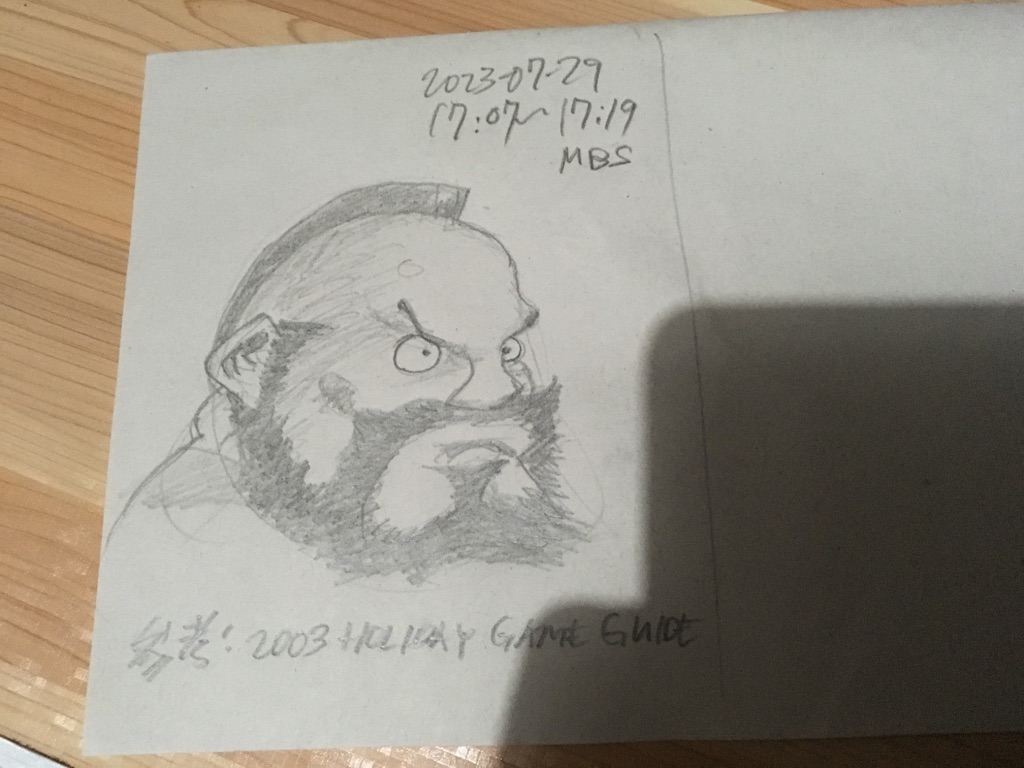 2023-07-29
17:07~17:19
MBS
参考: 2003 HOLIDAY GAME GUIDE